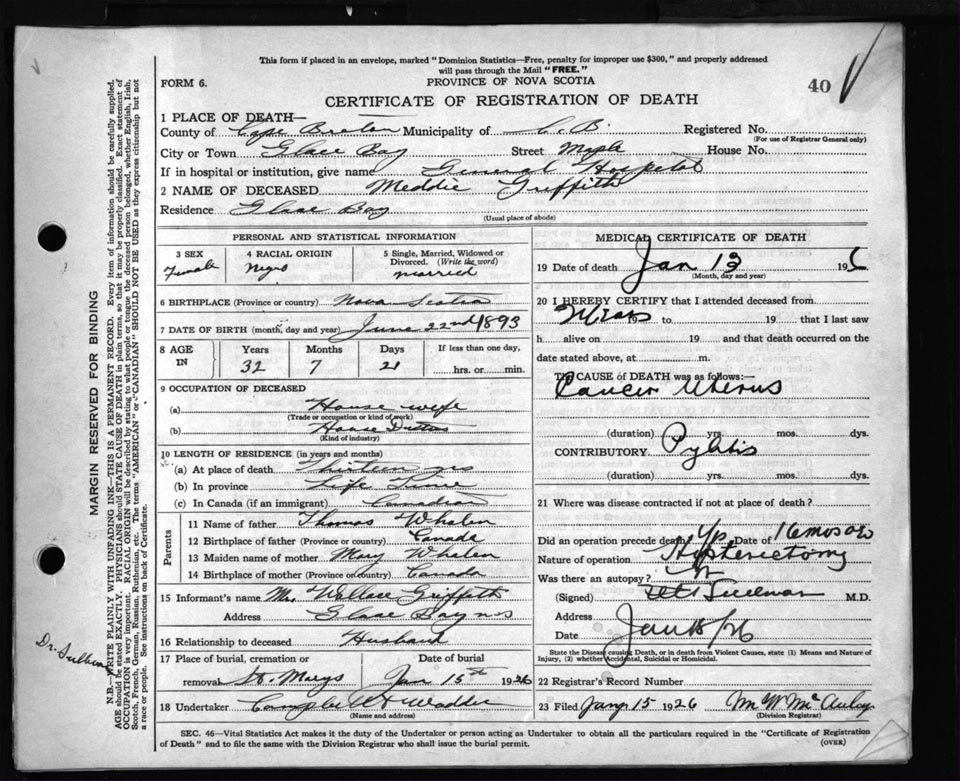 This form if placed in an envelope, marked "Dominion Statistics—Free, penalty for improper use $300," and properly addressed
will pass through the Mail "FREE."
FORM 6.
PROVINCE OF NOVA SCOTIA
40
CERTIFICATE OF REGISTRATION OF DEATH
1 PLACE OF DEATH—
County of Cape Breton Municipality of C.B. Registered No.
(For use of Registrar General only)
City or Town Glace Bay Street Maple House No.
If in hospital or institution, give name General Hospital
2 NAME OF DECEASED Meddie Griffith
Residence Glace Bay
(Usual place of abode)
PERSONAL AND STATISTICAL INFORMATION
3 SEX Female
4 RACIAL ORIGIN Negro
5 Single, Married, Widowed or Divorced. (Write the word) married
6 BIRTHPLACE (Province or country) Nova Scotia
7 DATE OF BIRTH (month, day and year) June 22nd 1893
8 AGE IN Years 32 Months 7 Days 21 If less than one day, hrs. or min.
9 OCCUPATION OF DECEASED
(a) House wife
(Trade or occupation or kind of work)
(b) House Duties
(Kind of industry)
10 LENGTH OF RESIDENCE (in years and months)
(a) At place of death Thirteen yrs
(b) In province Life Time
(c) In Canada (if an immigrant) Canadian
Parents
11 Name of father Thomas Whalen
12 Birthplace of father (Province or country) Canada
13 Maiden name of mother Mary Whalen
14 Birthplace of mother (Province or country) Canada
15 Informant's name Mr. Wallace Griffith
Address Glace Bay NS
16 Relationship to deceased Husband
17 Place of burial, cremation or removal St. Marys Date of burial Jan 15th 1926
18 Undertaker Campbell
(Name and address)
MEDICAL CERTIFICATE OF DEATH
19 Date of death Jan 13 192
(Month, day and year)
20 I HEREBY CERTIFY that I attended deceased from
19 to 19 that I last saw
h alive on 19 and that death occurred on the
date stated above, at m.
THE CAUSE OF DEATH was as follows:—
Cancer Uterus
(duration) yrs. mos. dys.
CONTRIBUTORY Pylitis
(duration) yrs. mos. dys.
21 Where was disease contracted if not at place of death?
Did an operation precede death? Yes Date of 16 mos ago
Nature of operation Hysterectomy
Was there an autopsy?
(Signed) M.D.
Address
Date Jan 15/26
State the Disease causing Death, or in death from Violent Causes, state (1) Means and Nature of
Injury, (2) whether Accidental, Suicidal or Homicidal.
22 Registrar's Record Number
23 Filed Jany 15 1926 M W McAulay
(Division Registrar)
SEC. 46—Vital Statistics Act makes it the duty of the Undertaker or person acting as Undertaker to obtain all the particulars required in the "Certificate of Registration
of Death" and to file the same with the Division Registrar who shall issue the burial permit.
(OVER)
MARGIN RESERVED FOR BINDING
N.B.—WRITE PLAINLY WITH UNFADING INK—THIS IS A PERMANENT RECORD. Every item of information should be carefully supplied.
AGE should be stated EXACTLY. PHYSICIANS should STATE CAUSE OF DEATH in plain terms, so that it may be properly classified. Exact statement of
OCCUPATION is very important. RACIAL ORIGIN will be described by stating to what people or tongue the deceased person belonged, whether English, Irish,
Scotch, French, German, Russian, Ruthenian, etc. The terms "AMERICAN" or "CANADIAN" SHOULD NOT BE USED as they express citizenship but not
a race or people. See instructions on back of Certificate.
Dr.